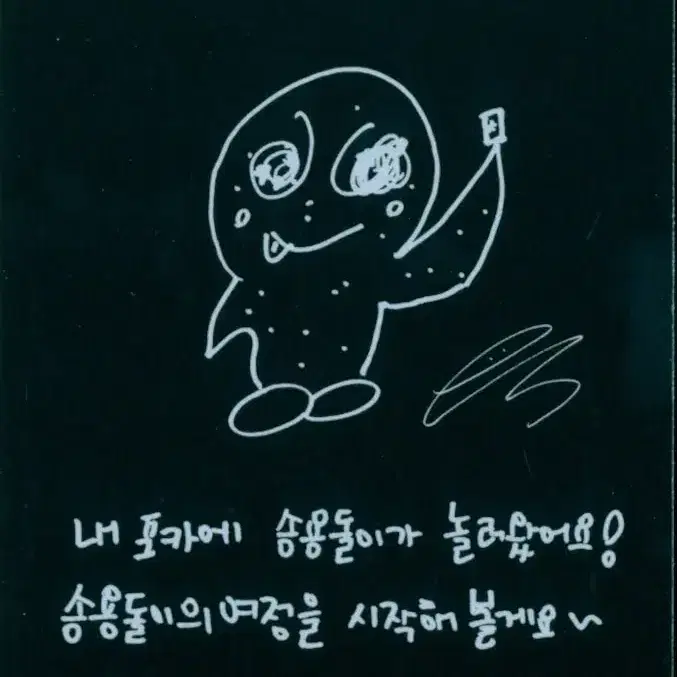 내 포카에 승용돌이가 놀러왔어요!
승용돌이의 여정을 시작해 볼게요~